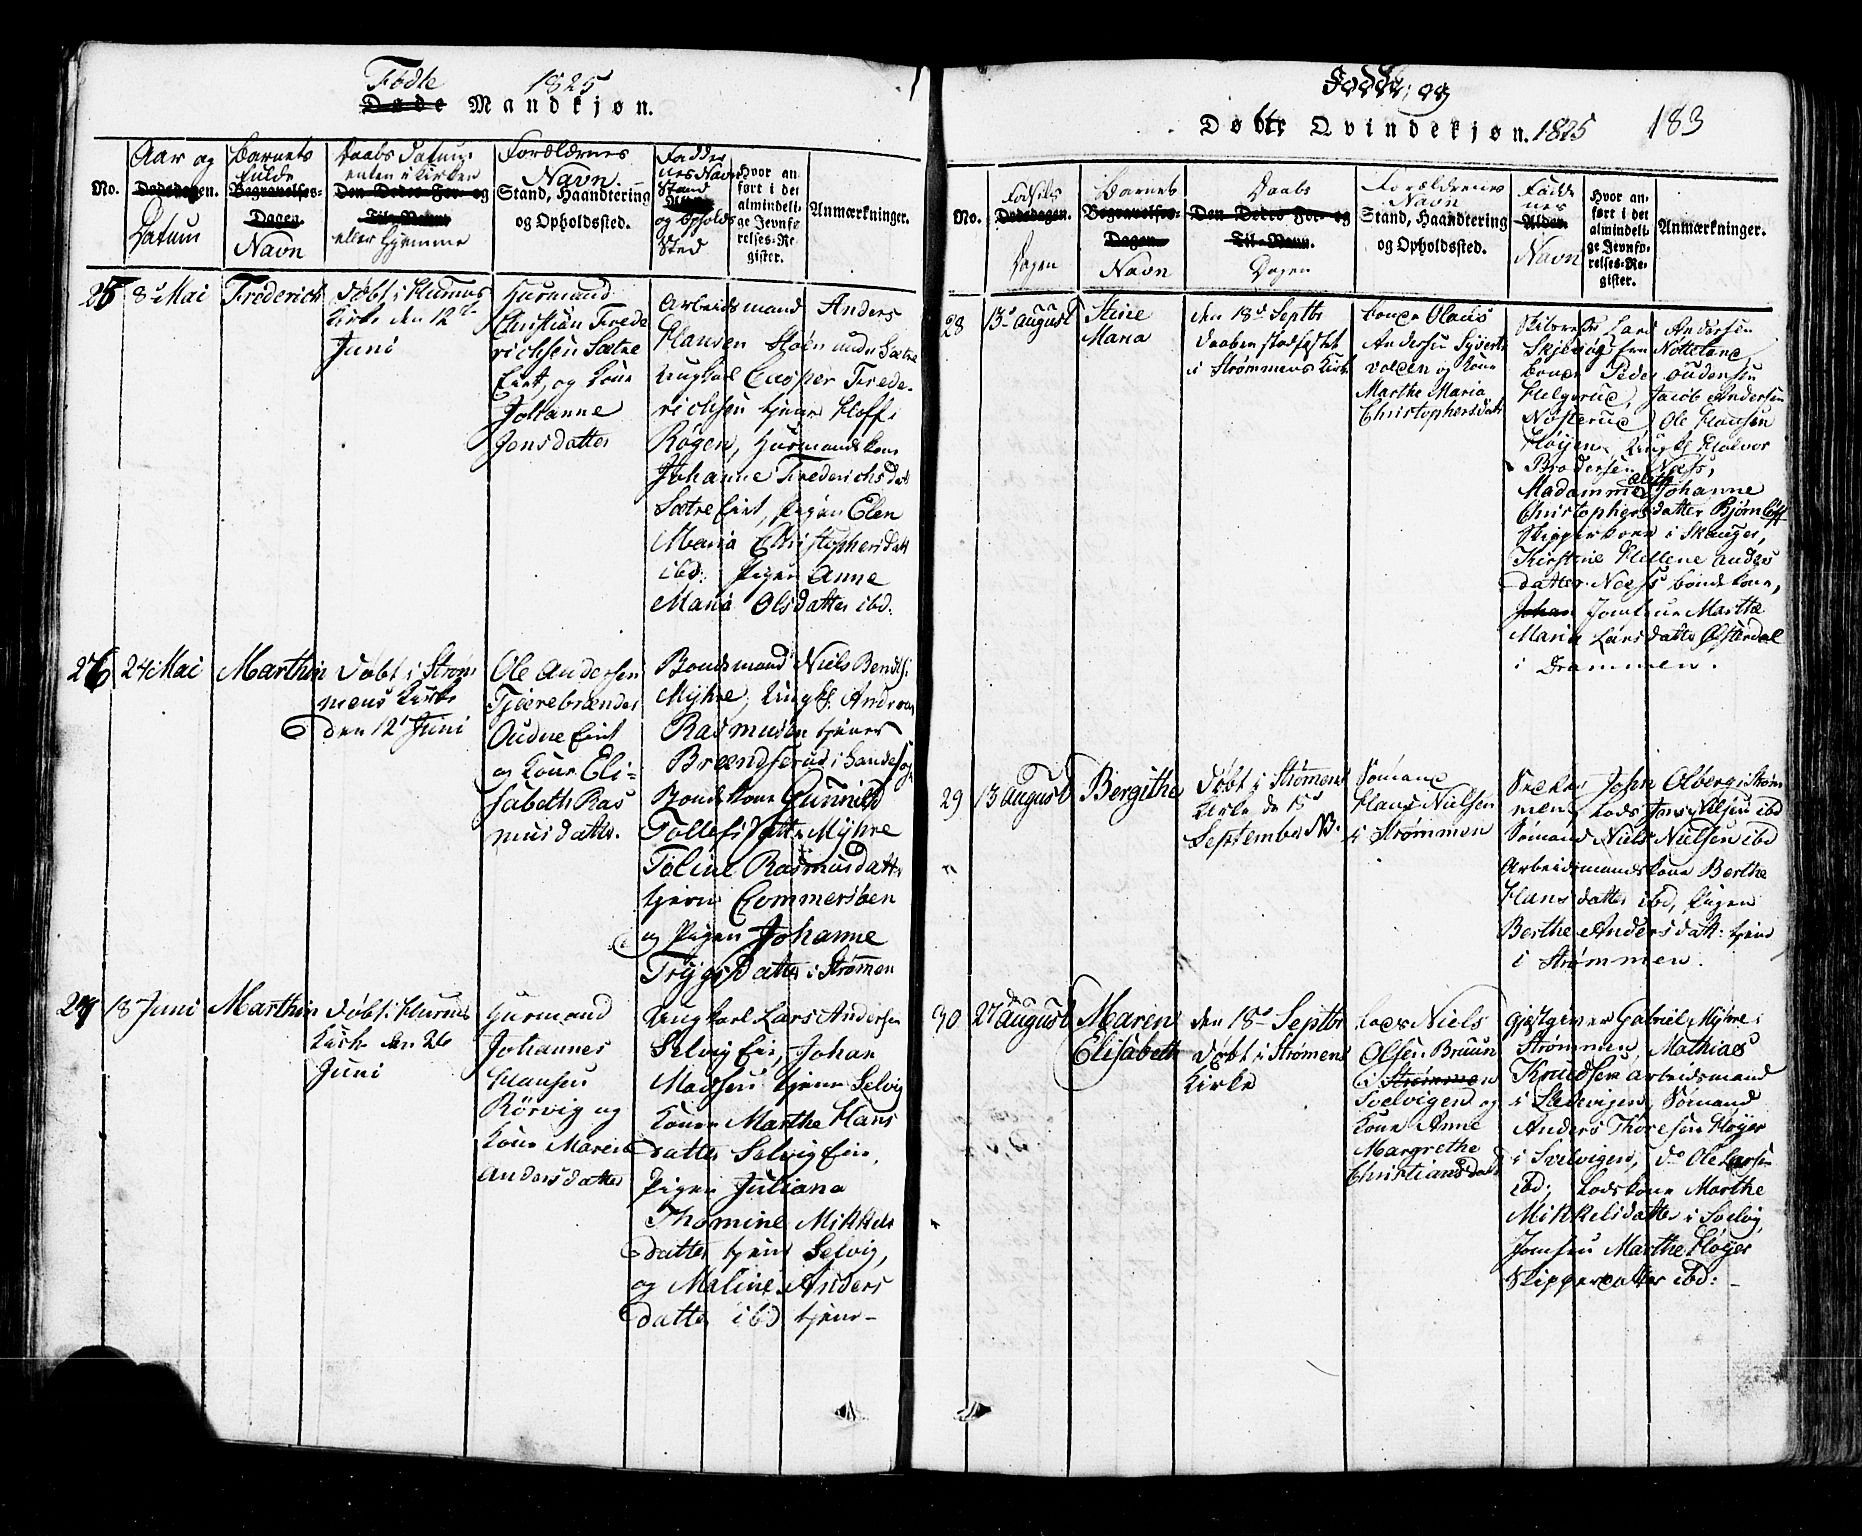 Fødte 1825
Døde Mandkjøn.
No.
Aar og
Dødsdagen.
Datum
Barnets
fulde
Begravelses-
Dagen
Navn
Daabs Datum
enten i Kirken
Den Dødes For- og
Til-Navn
eller Hjemme
Forældrenes
Navn
Stand, Haandtering
og Opholdssted.
Fadder
nes Navn
Stand
og Opholds
Sted
Hvor an-
ført i det
almindeli-
ge Jevnfø-
relses-Re-
gister.
Anmærkninger.
25
8d Mai
Frederich
Døbt i Hurums
Kirke den 12te
Juni
Huusmand
Christian Frede
richsen Sætre
Eiet, og Kone
Johanne
Jonsdatter
Arbeidsmand Anders
Hansen Støen under Sætre
Ungkarl Casper Frede-
richsen tjener Hoff i
Røgen, Huusmandskone
Johanne Frederichsdatt
Sætre Eiet, Pigen Elen
Maria Christophersdatt
ibd: Pigen Anne
Maria Olsdatter ibd.
26
24 Mai
Marthin
Døbt i Strøm
mens Kirke
den 12 Juni
Ole Andersen
Tjærebrænder
Oudne Eiet
og Kone Eli-
sabeth Ras
musdatter.
Bondemand Niels Bentsf:
Myhre, Ungk. Andreas
Rasmusen tjener
Brændserud i Sandesogn
Bondekone Gunnild
Tollefsdatter Myhre
Toline Rasmusdatter
tjener Commersøen
og Pigen Johanne
Trygsdatter i Strømen
27
18 Juni
Marthin
Døbt i Hurums
Kirke den 26
Juni
Huusmand
Johannes
Hansen
Rörvig og
Kone Maren
Andersdatter
Ungkarl Lars Andersen
Selvig Eie, Johan
Madsen tjener Selvig
Konen Marthe Hans
datter Selvig Eie,
Pigen Juliana
Thomine Mikkels
datter tjener Selvig,
og Maline Anders
datter ibd tjener
Fødte og
Døbte Qvindekjøn. 1825 183
No.
Fødsels
Dødsdagen.
Dagen
Barnets
Begravelses-
Dagen.
Navn
Daabs
Den Dødes For- og
Til-Navn.
Dagen
Forældrenes
Navn
Stand, Haandtering
og Opholdssted.
Fadd
nes
Alder.
Navn
Hvor an-
ført i det
almindeli-
ge Jevnfø-
relses-Re-
gister.
Anmærkninger.
28
13d August
Stine
Maria
den 18d Septbr
Daaben stadfæstet
i Strømmens Kirke
Bonde Olaus
Andersen Syverts
volden og Kone
Marthe Maria
Christophersdatt
Lars Andersen
Skjeøg fra Nøtteland
Bonde Peder Oudensen
Helgerud, Jacob Andersen
Nøsterud, Ole Hansen
Høijen, Ungk Halvor
Brodersen Næss,
Madamme Johanne
Christophersdatter Bjørn
Skipperkone i Skauger,
Kirstine Hellene Anders
datter Næss bondekone,
Johan Jomfrue Marthe
Maria Larsdatter Østerdal
i Drammen.
29
13 August
Bergithe
Døbt i Strømens
Kirke d 18d
September NB.
Sømand
Hans Nielsen
i Strømmen
Snedker John Olberg i Strøm
men, Lods Jens Nilsen ibd
Sømand Niels Nielsen ibd
Arbeidsmandskone Berthe
Hansdatter ibd, Pigen
Berthe Andersdatt: tjener
i Strømmen.
30
27de August
Maren
Elisabeth
den 18d Septbr
Døbt i Strømens
Kirke
Lods Niels
Olsen Bruun
i Strømmen
Svelvigen og
Kone Anne
Margrethe
Christiansdatt
Gjæstgiver Gabriel Myhre i
Strømmen, Mathias
Knudsen arbeidsmand
i Svelvigen, Sømand
Anders Thoresen Høyer
i Svelvigen, do Ole Larsen
ibd, Lodskone Marthe
Mikkelsdatter i Svelvig,
Jomfru Marthe Høyer
Skipperdatter ibd: